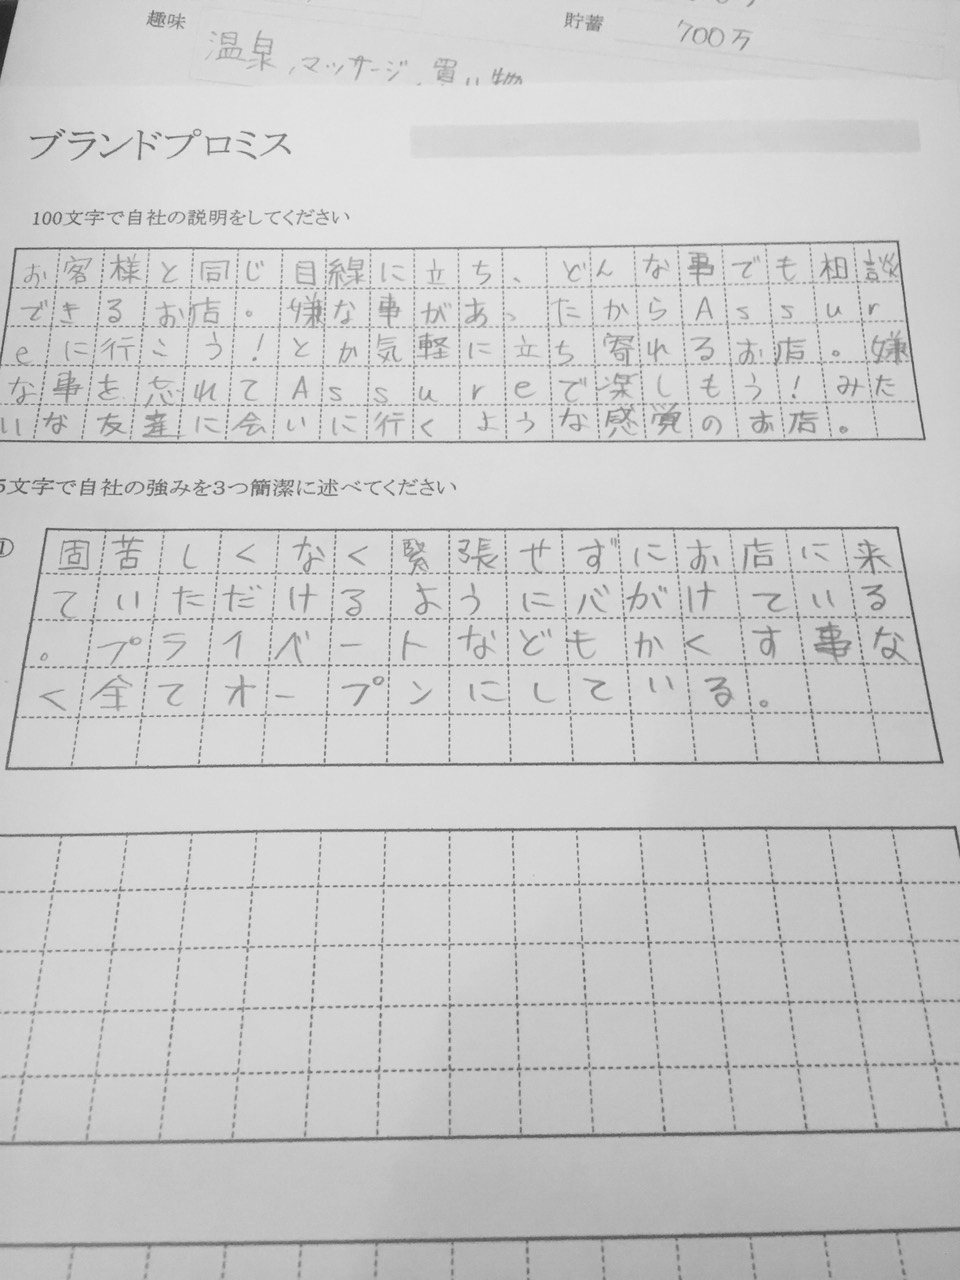 趣味
貯蓄
700万
温泉、マッサージ、買い物
ブランドプロミス
100文字で自社の説明をしてください
お客様と同じ目線に立ち、どんな事でも相談
できるお店。嫌な事があったからAssur
eに行こう!とか気軽に立ち寄れるお店。嫌
な事を忘れてAssureで楽しもう!みた
いな友達に会いに行くような感覚のお店。
5文字で自社の強みを3つ簡潔に述べてください
①
固苦しくなく緊張せずにお店に来
ていただけるように心がけている
。プライベートなどもかくす事な
く全てオープンにしている。